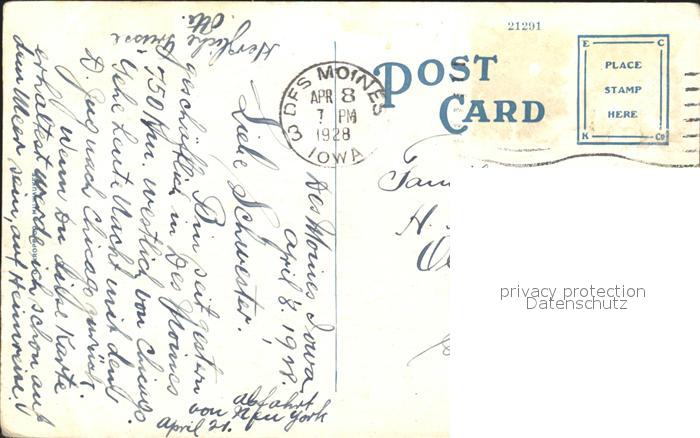 21291
POST
CARD
E C
PLACE
STAMP
HERE
K Co
DES MOINES
APR 8
7 PM
1928
IOWA
Des Moines Iowa
April 8. 1928.
Liebe Schwester,
Bin seit gestern
geschäftlich in Des Moines
750 km. westlich von Chicago
Gehe heute Nacht mit dem
D. Zug nach Chicago zurück.
Wenn Du diese Karte
erhaltest werde ich schon auf
dem Meer sein, auf Heimreise.
Herzliche Grüsse
Otto.
Abfahrt
von New York
April 21.
Fam
H.
privacy protection
Datenschutz